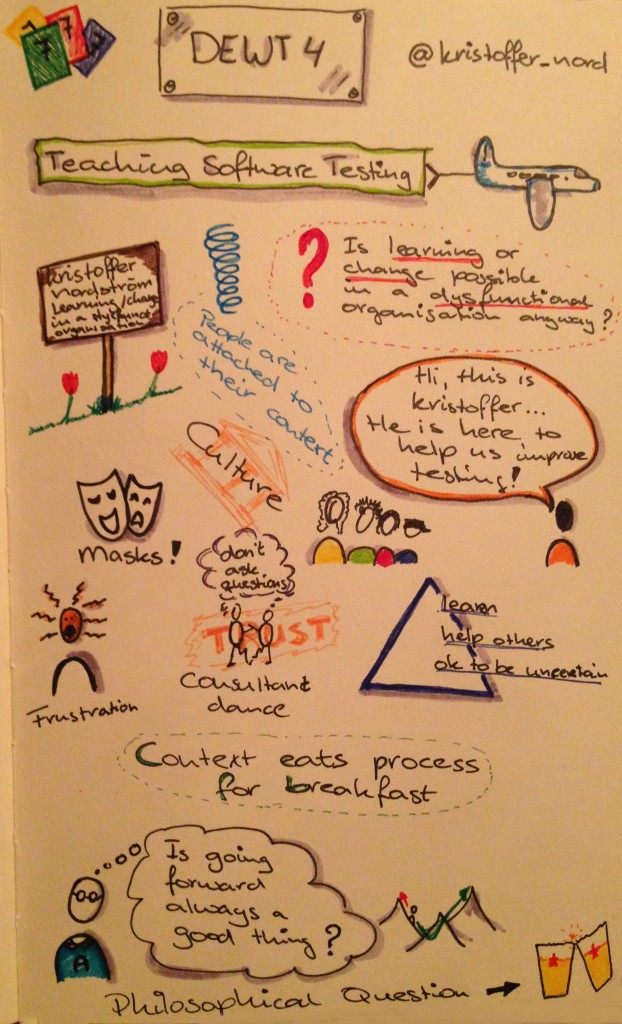 7 7 7
DEWT 4
@kristoffer_nord
Teaching Software Testing
kristoffer
nordström
learning/change
in a
organisation
? Is learning or
change possible
in a dysfunctional
organisation anyway?
People are
attached to
their context
Hi, this is
kristoffer...
He is here to
help us improve
testing!
Culture
Masks!
don't
ask
questions
TRUST
Consultant
dance
learn
help others
ok to be uncertain
Frustration
Context eats process
for breakfast
Is going
forward
always a
good thing?
A
Philosophical Question